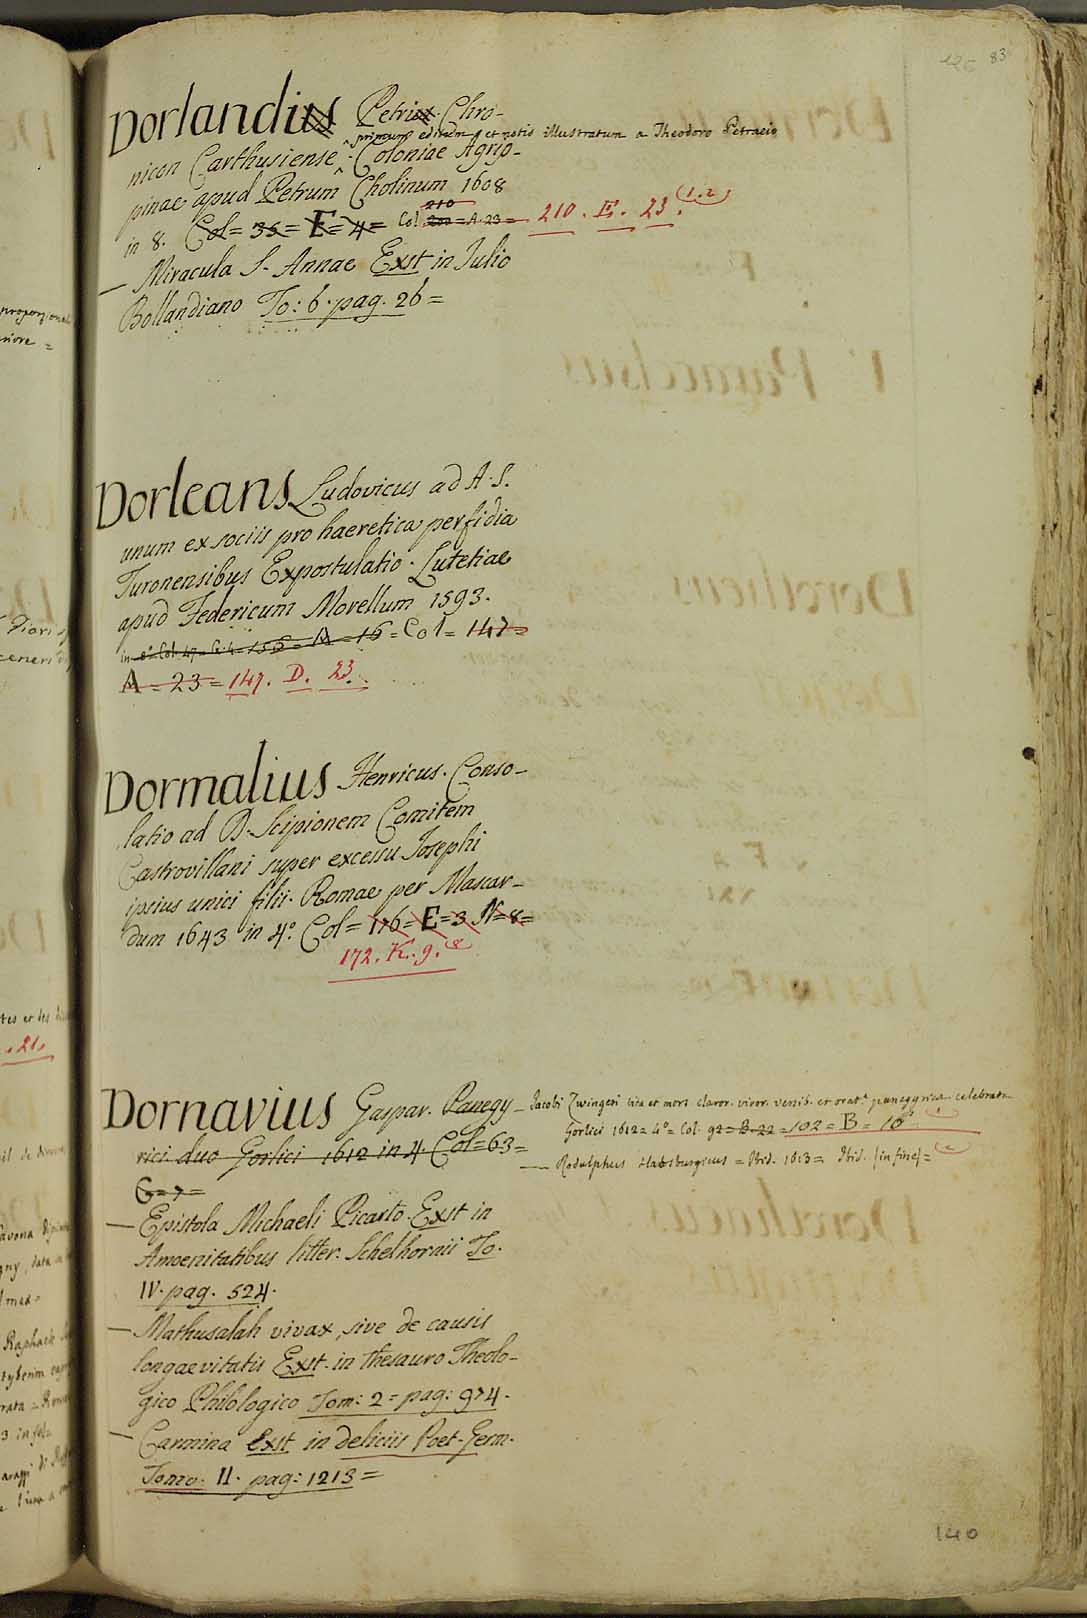 83
Dorlandius Petrus. Chro-
primum editum et notis illustratum a Theodoro Petraeio
nicon Carthusiense. Coloniae Agrip-
pinae apud Petrum Cholinum 1608
210
in 8. Col = 35 = E = 4 = Col = A. 23 = 210. E. 23. (1.2)
— Miracula S. Annae Exst in Julio
Bollandiano To: 6. pag. 26 =
Dorleans Ludovicus ad A. S.
unum ex sociis pro haeretica perfidia
Turonensibus Expostulatio. Lutetiae
apud Federicum Morellum 1593.
in 8° Col. 47 = = 156 = A = 16 = Col = 147 =
A = 23 = 147. D. 23.
Dormalius Henricus. Conso-
latio ad D. Scipionem Comitem
Castrovillani super excessu Josephi
ipsius unici filii. Romae per Mascar-
dum 1643 in 4.° Col = 176 = E = 3 N = 8 =
172. K. 9. (8)
Dornavius Gaspar. Panegy-
rici duo Gorlici 1612 in 4. Col = 63 =
G = 7 =
Jacobi Zwingeri vita et mors claror. viror. versib. et orat.e panegyrica celebrata
Gorlici 1612 = 4° = Col. 92 = B. 22 = 102 = B = 10 (1)
— Rodulphus Habsburgicus = Ibid. 1613 = Ibid. (in fine) = (2)
— Epistola Michaeli Picarto. Exst in
Amoenitatibus litter. Schelhornii To.
IV. pag. 524.
— Mathusalah vivax, sive de causis
longaevitatis Exst. in thesauro Theolo-
gico Philologico Tom: 2 = pag: 974.
— Carmina Exst in deliciis Poet. Germ.
Tomo. II. pag: 1213 =
140